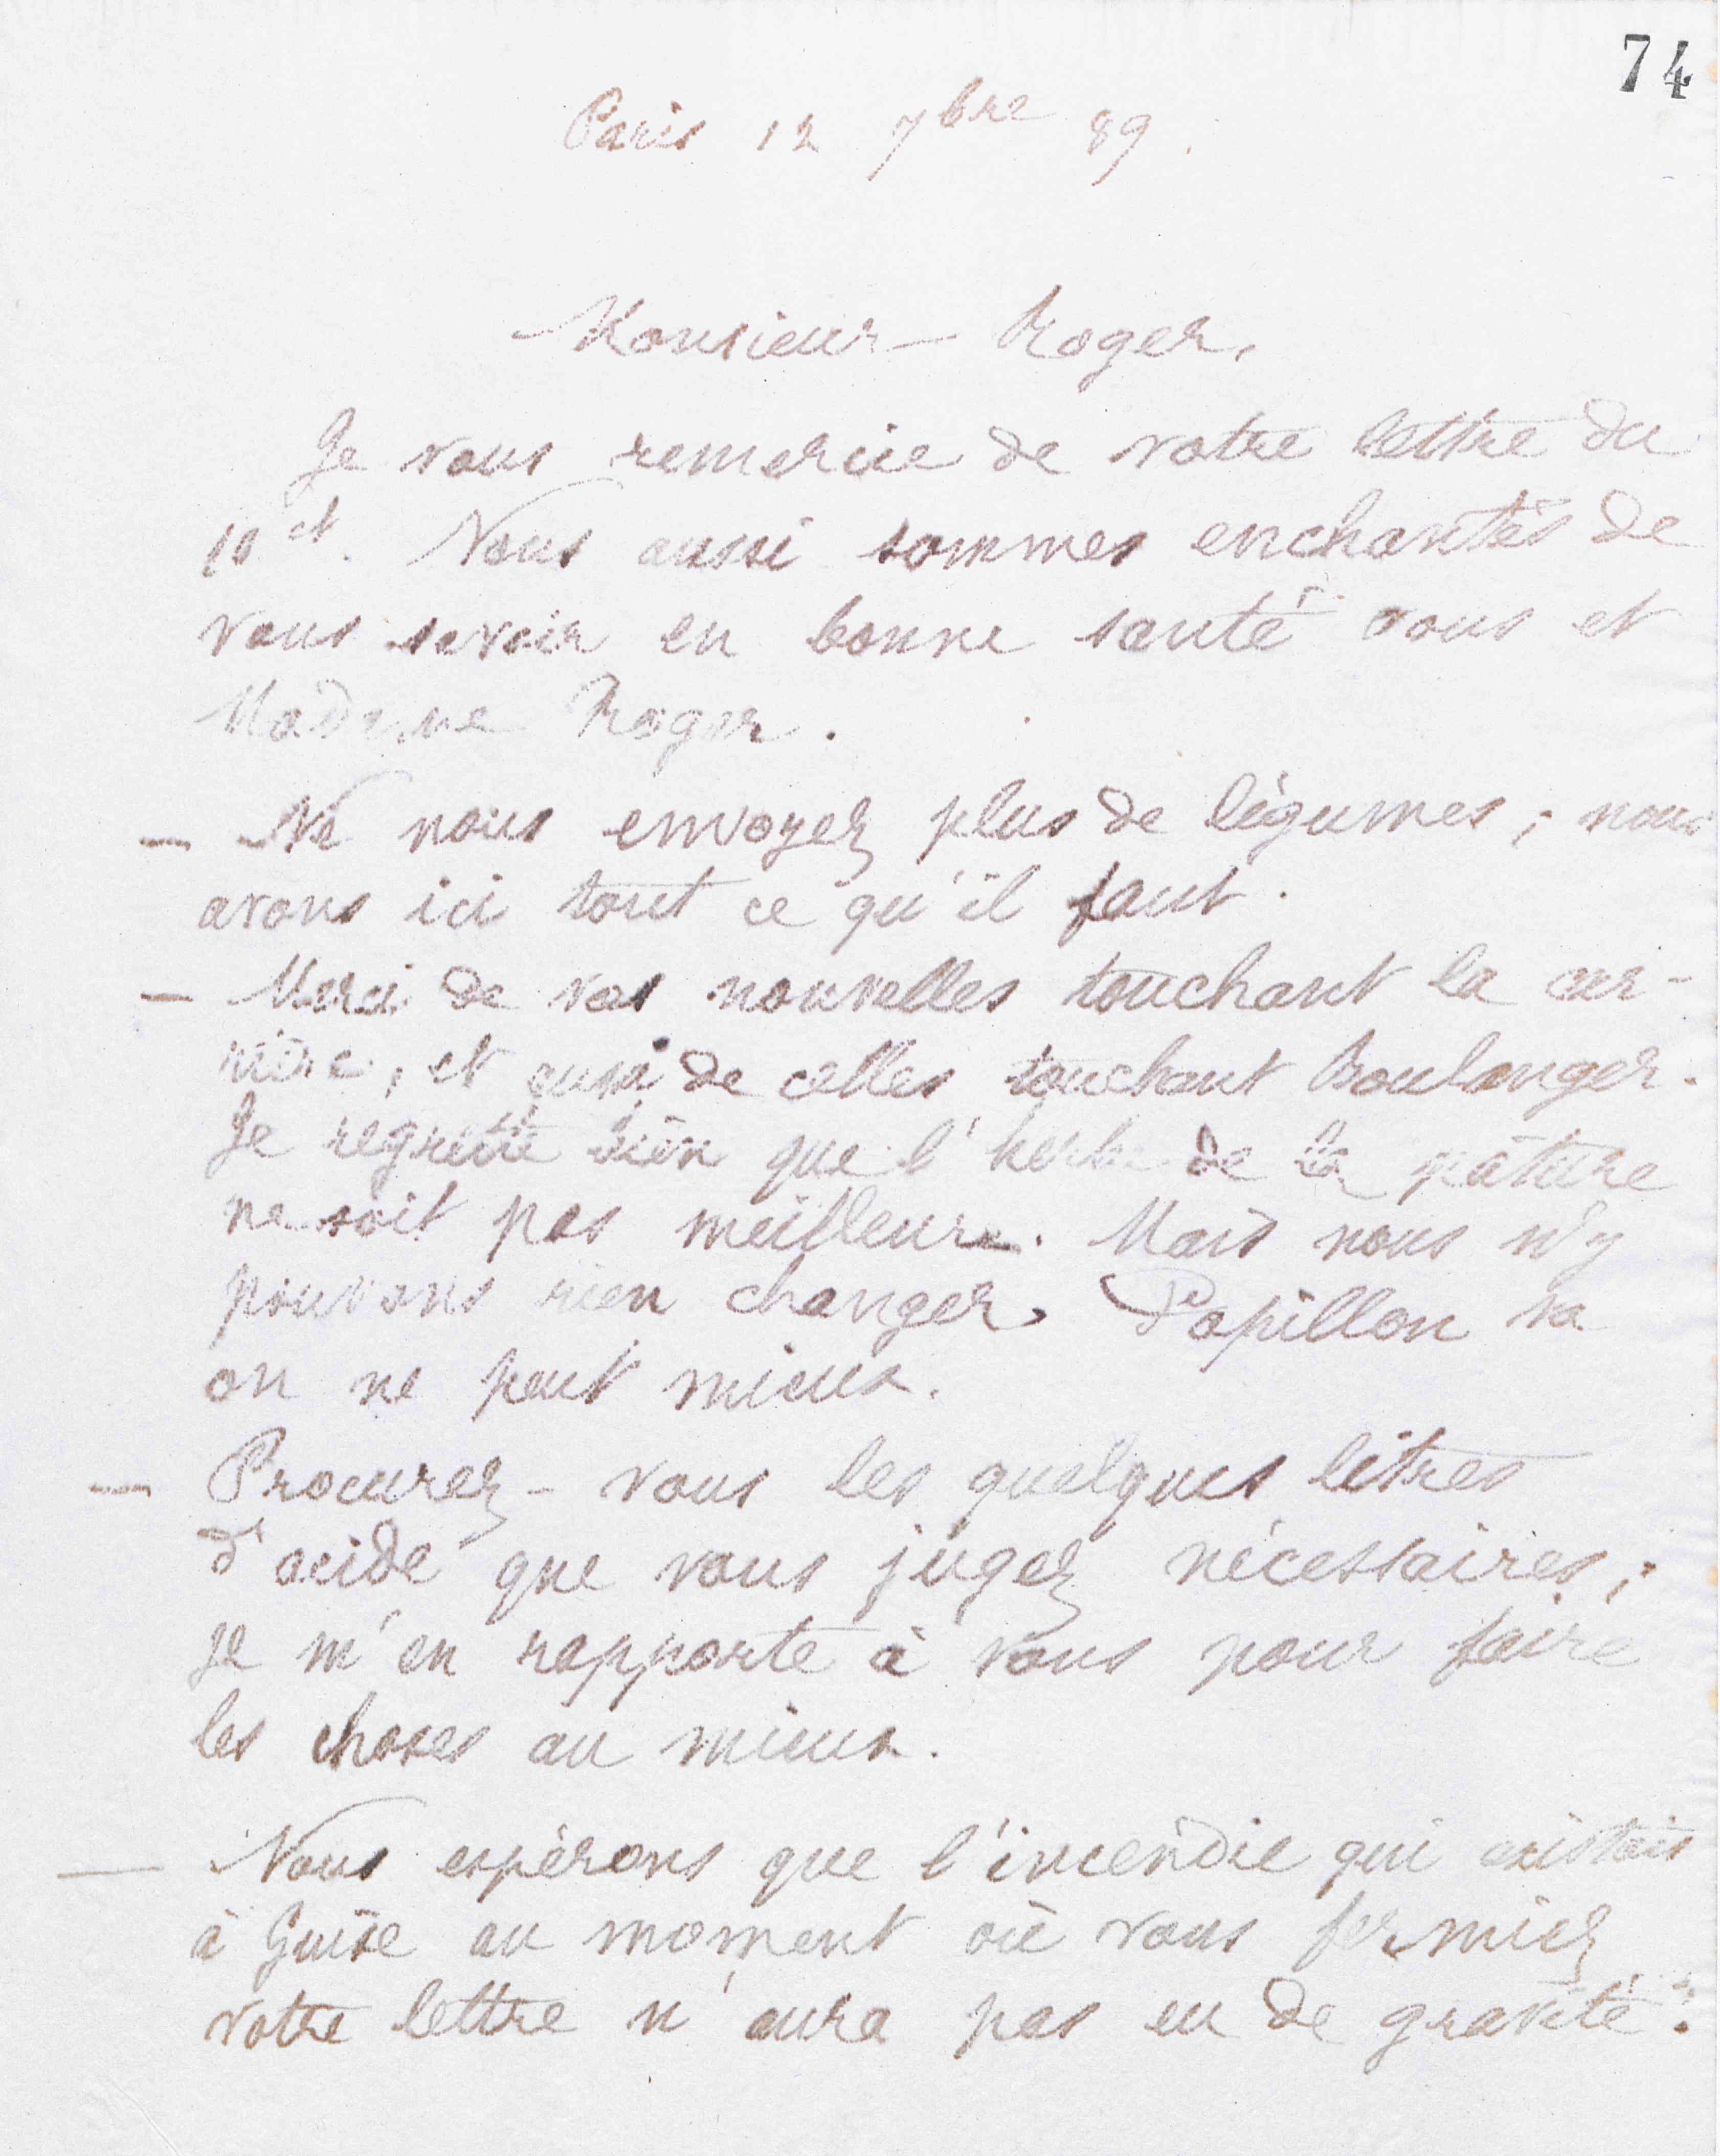 74
Paris 12 7bre 89.
Monsieur Roger,
Je vous remercie de votre lettre du
10 ct. Nous aussi sommes enchantés de
vous savoir en bonne santé vous et
Madame Roger.
— Ne nous envoyez plus de légumes ; nous
avons ici tout ce qu'il faut.
— Merci de vos nouvelles touchant la cer-
nière, et aussi de celles touchant Boulanger.
Je regrette bien que l'herbe de la pâture
ne soit pas meilleure. Mais nous n'y
pouvons rien changer. Papillon va
on ne peut mieux.
— Procurez-vous les quelques litres
d'acide que vous jugez nécessaires ;
je m'en rapporte à vous pour faire
les choses au mieux.
— Nous espérons que l'incendie qui existait
à Guise au moment où vous fermiez
votre lettre n'aura pas eu de gravité.